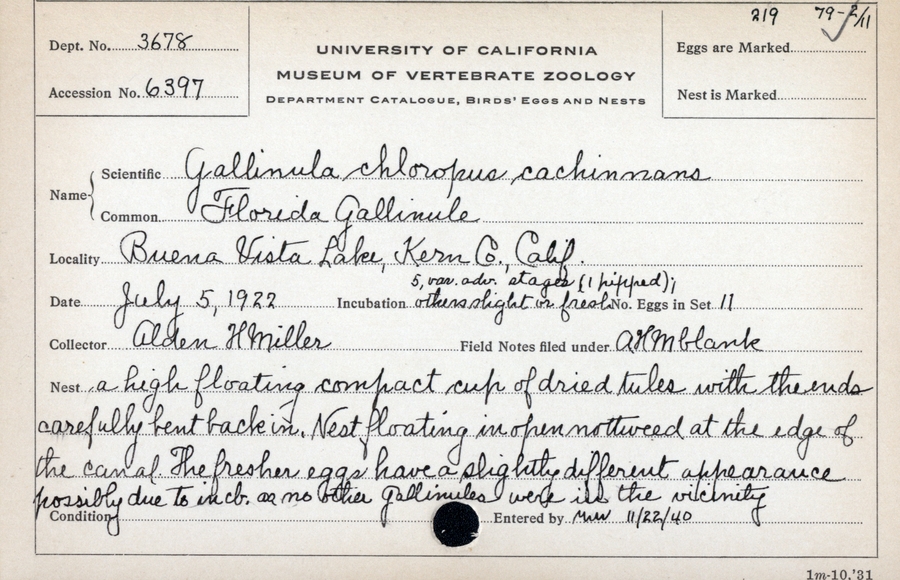 219 79-2/11
Dept. No. 3678
UNIVERSITY OF CALIFORNIA
MUSEUM OF VERTEBRATE ZOOLOGY
DEPARTMENT CATALOGUE, BIRDS' EGGS AND NESTS
Eggs are Marked
Accession No. 6397
Nest is Marked
Name
Scientific Gallinula chloropus cachinnans
Common Florida Gallinule
Locality Buena Vista Lake, Kern Co., Calif.
5, var. adv. stages (1 pipped);
Date July 5, 1922 Incubation others slight or fresh No. Eggs in Set 11
Collector Alden H Miller Field Notes filed under AHM blank
Nest a high floating compact cup of dried tules with the ends
carefully bent back in. Nest floating in open nottweed at the edge of
the canal. The fresher eggs have a slightly different appearance
possibly due to incb. as no other gallinules were in the vicinity
Condition Entered by MW 11/22/40
1m-10,'31